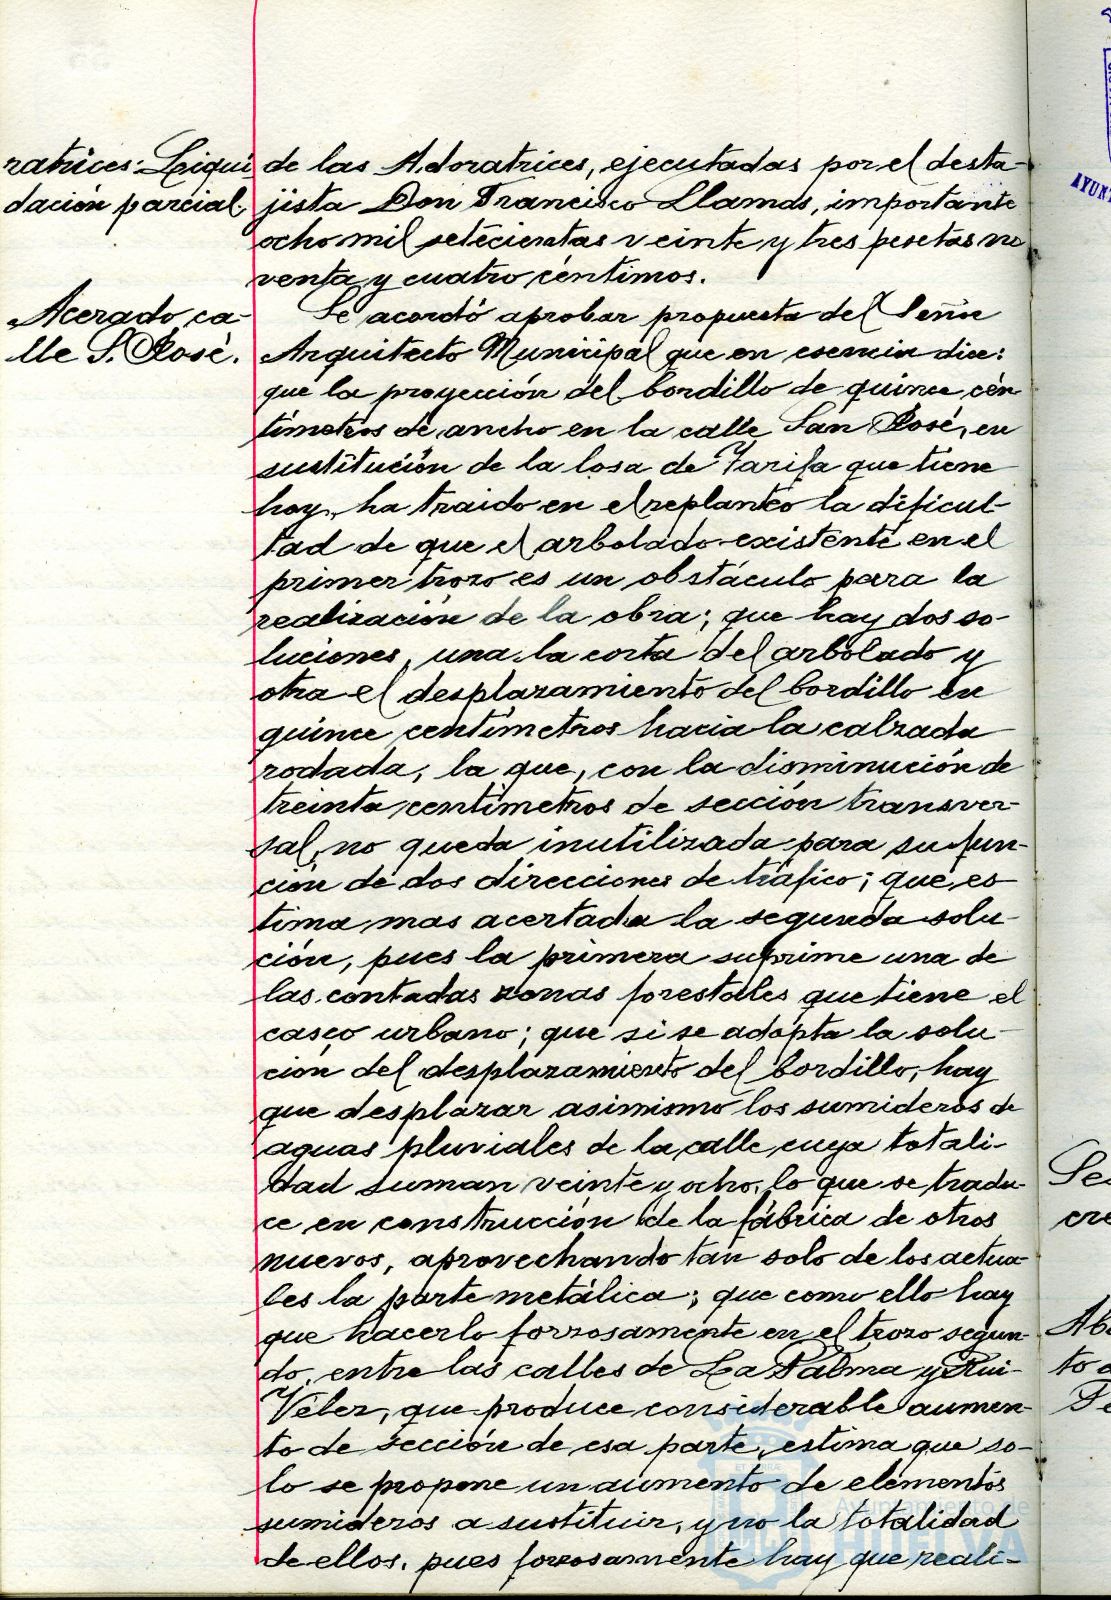 ratrices: Liqui
dación parcial
de las Adoratrices, ejecutadas por el desta-
jista Don Francisco Llamas, importante
ocho mil setecientas veinte y tres pesetas no
venta y cuatro céntimos.
Acerado ca-
lle S. José.
Se acordó aprobar propuesta del Señor
Arquitecto Municipal que en esencia dice:
que la proyección del bordillo de quince cen
tímetros de ancho en la calle San José, en
sustitución de la losa de Tarifa que tiene
hoy, ha traido en el replanteo la dificul-
tad de que el arbolado existente en el
primer trozo es un obstáculo para la
realización de la obra; que hay dos so-
luciones, una la corta del arbolado y
otra el desplazamiento del bordillo en
quince centímetros hacia la calzada
rodada, la que, con la disminución de
treinta centímetros de sección transver-
sal, no queda inutilizada para su fun-
ción de dos direcciones de tráfico; que es
tima mas acertada la segunda solu-
ción, pues la primera suprime una de
las contadas zonas forestales que tiene el
casco urbano; que si se adopta la solu-
ción del desplazamiento del bordillo, hay
que desplazar asimismo los sumideros de
aguas pluviales de la calle cuya totali-
dad suman veinte y ocho, lo que se tradu-
ce en construcción de la fábrica de otros
nuevos, aprovechando tan solo de los actua
les la parte metálica; que como ello hay
que hacerlo forzosamente en el trozo segun-
do, entre las calles de La Palma y Rui-
Vélez, que produce considerable aumen-
to de sección de esa parte, estima que so-
lo se propone un aumento de elementos
sumideros a sustituir, y no la totalidad
de ellos, pues forzosamente hay que reali-
Ayuntamiento de
HUELVA